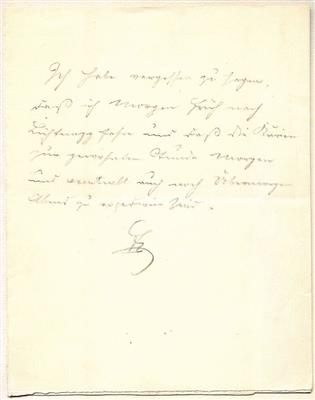 Ich habe vergessen zu sagen,
daß ich Morgen Früh nach
fahre und daß die
zur gewohnten Stunde Morgen
und eventuell auch noch Übermorgen
Abend zu expedieren sind.